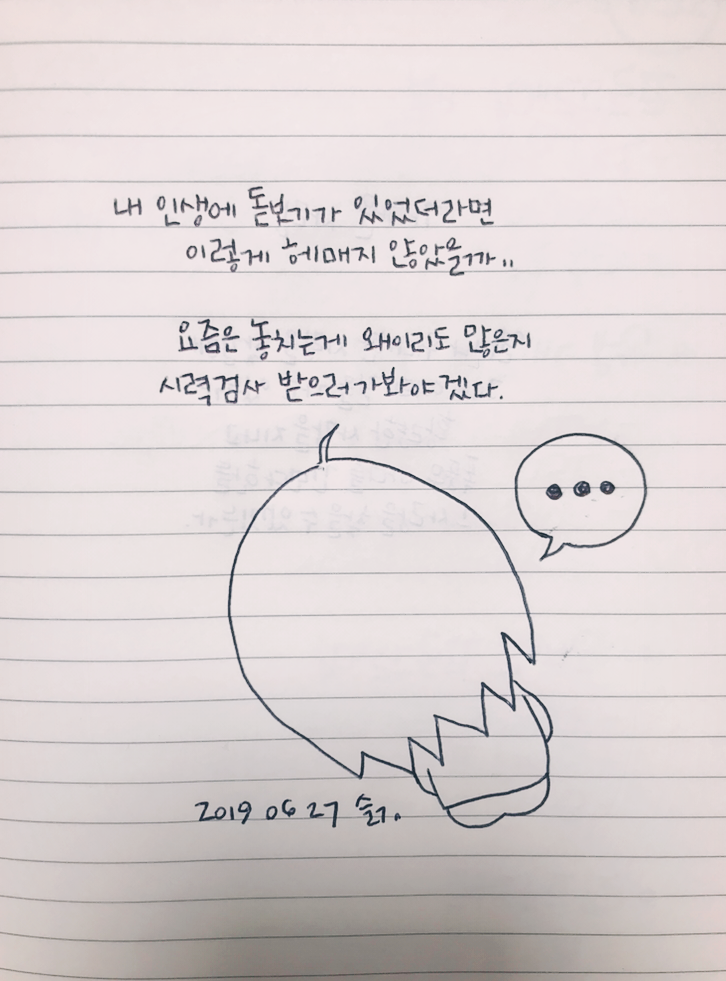 내 인생에 돋보기가 있었더라면
이렇게 헤매지 않았을까..
요즘은 놓치는게 왜이리도 많은지
시력검사 받으러가봐야겠다.
2019 06 27 슬기.